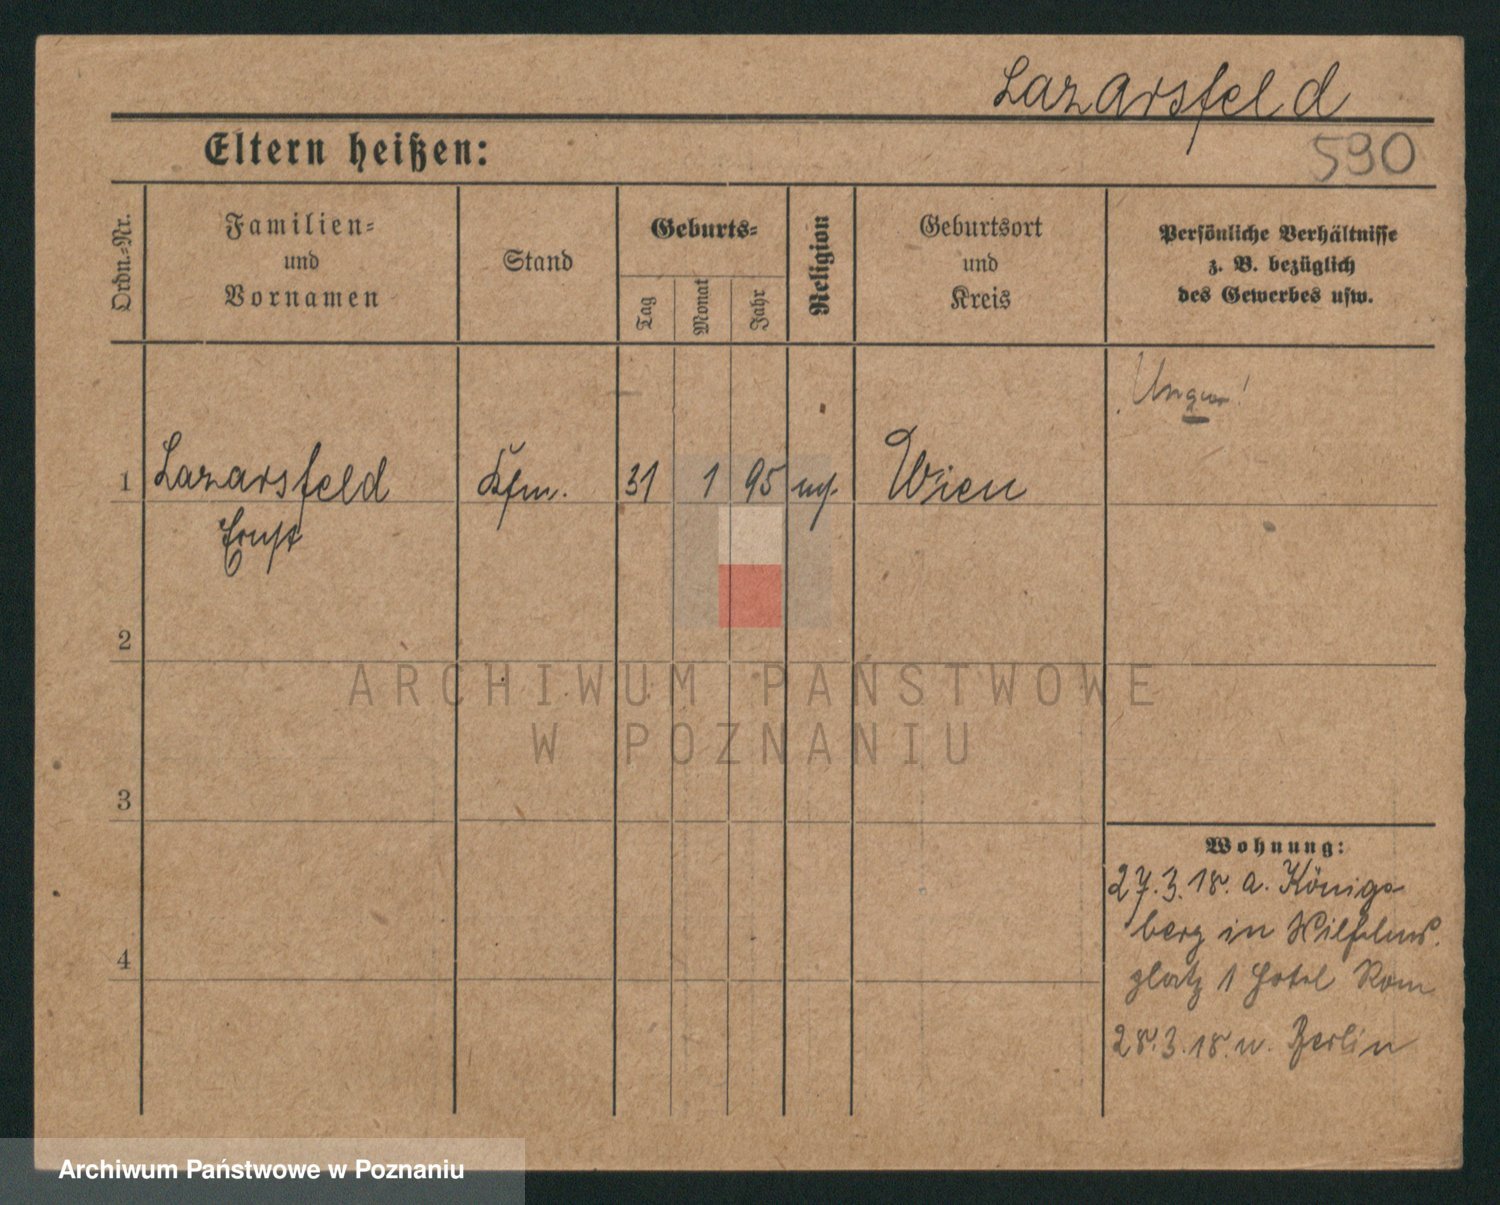 Lazarsfeld
Eltern heißen:
590
Ordn.-Nr.
Familien-
und
Vornamen
Stand
Geburts-
Tag
Monat
Jahr
Religion
Geburtsort
und
Kreis
Persönliche Verhältnisse
z. B. bezüglich
des Gewerbes usw.
1
Lazarsfeld
Ernst
Kfm.
31
1
95
Wien
2
ARCHIWUM PAŃSTWOWE
W POZNANIU
3
4
Wohnung:
27.3.18. a. Königs-
berg in Wilhelms.
platz 1 Hotel Rom
28.3.18. n. Berlin
Archiwum Państwowe w Poznaniu